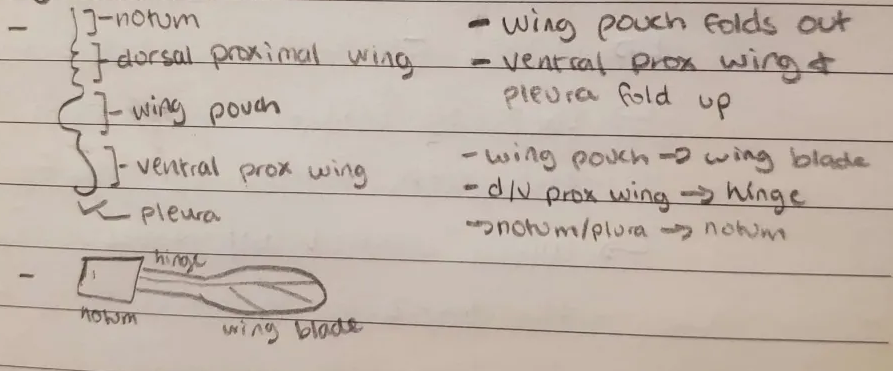 - notum
- dorsal proximal wing
- wing pouch
- ventral prox wing
pleura
- wing pouch folds out
- ventral prox wing &
pleura fold up
- wing pouch → wing blade
- d/v prox wing → hinge
→ notum/plura → notum
hinge
notum
wing blade